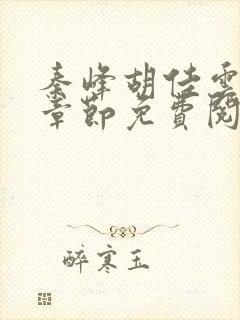 秦峰胡佳雪
章節免費閱
醉寒玉